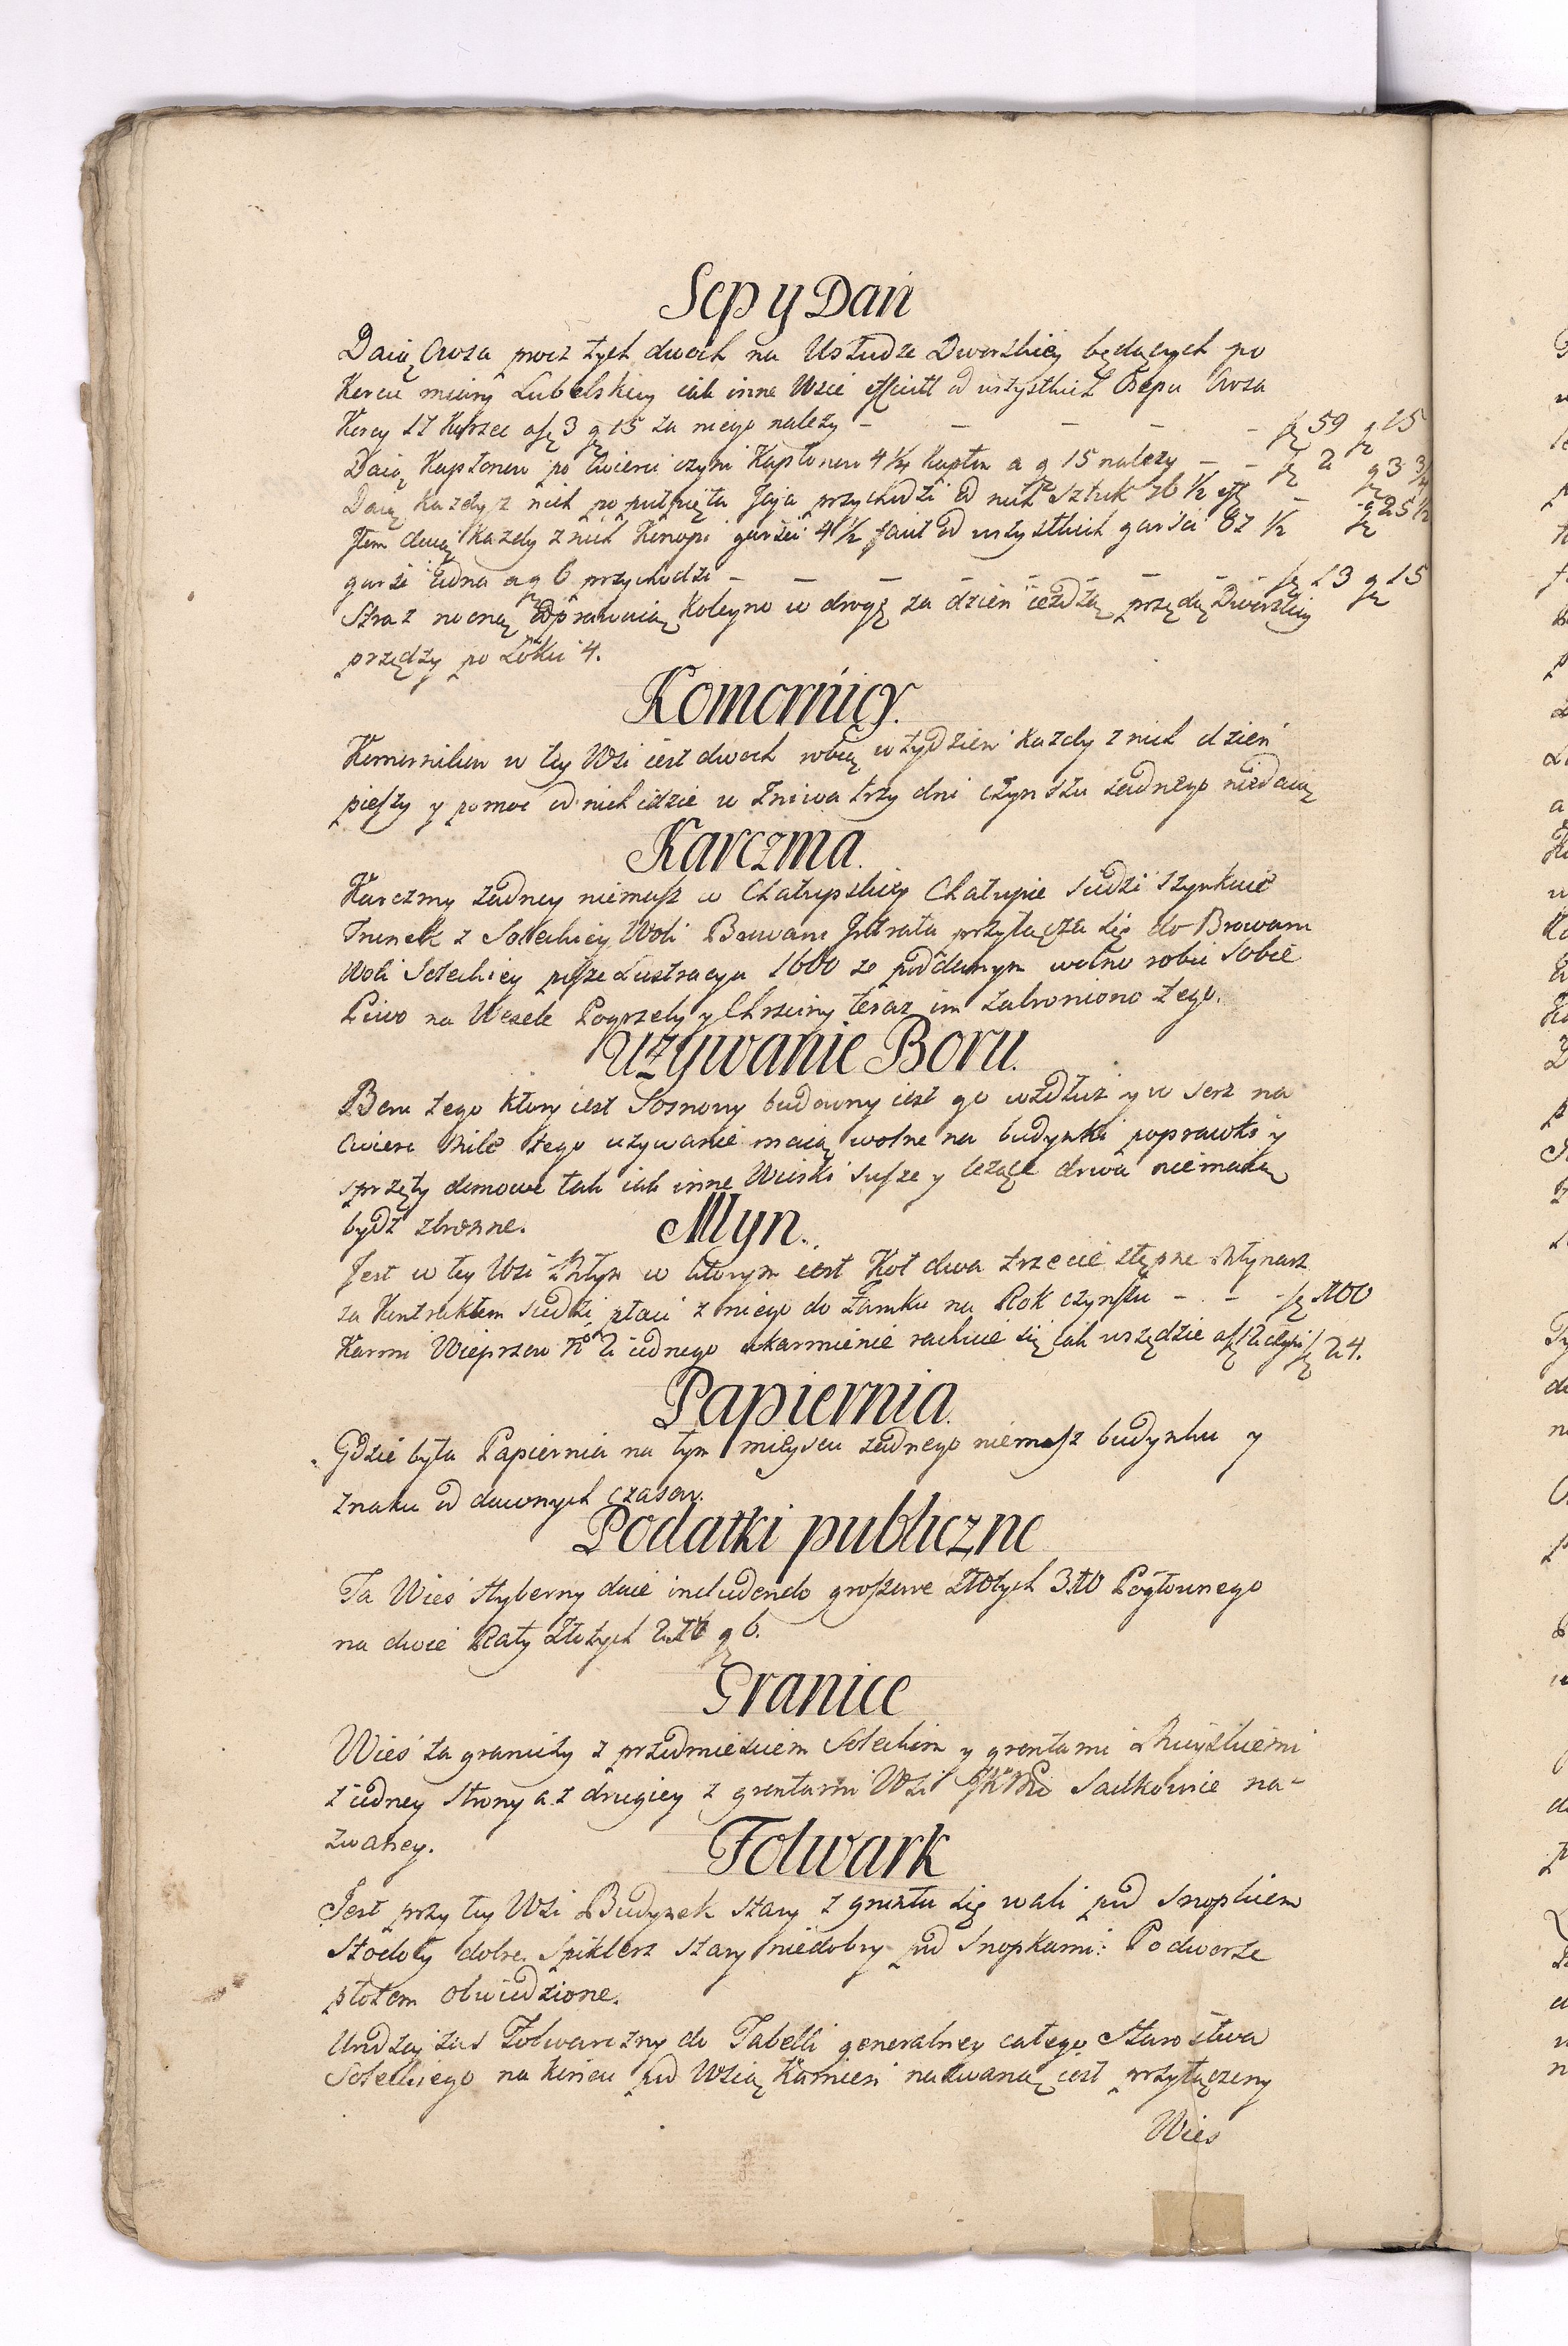 Sep y Dań
Daią Owsa procz tych dwoch na Usłudze Dworskiey będących po
Korcu miary Lubelskiey iak inne Wsie effciutt od wszystkich Osepu Owsa
Korcy 17 Korzec a fl 3 gr 15 za niego należy – – – – – fl 59 gr 15
Daią Kapłonow po Cwierci czyni Kapłonow 4 1/4 Kapłon a gr 15 należy – – fl 2 gr 3 3/4
Daią Każdy z nich po pułpięta Jaja przychodzi od nich Sztuk 76 1/2 – gr 25 1/2
Item daią Każdy z nich Konopi garści 4 1/2 facit od wszystkich garści 67 1/2
garść iedna a gr 6 przychodzi – – – – – – – – fl 13 gr 15
Straż nocną odprawuią Koleyno w drogę za dzien ieżdżą przędą Dworskiey
przędzy po Łokci 4.
Komornicy.
Komornikow w tey Wsi iest dwoch robią w tydzień Każdy z nich dzien
pieszy y pomoc od nich idzie w Zniwa trzy dni czynszu żadnego niedaią
Karczma.
Karczmy żadney niemasz w Chałupskiey Chałupie siedzi Szynkuie
Trunek z Soleckiey Woli Browaru Intrata przyłącza się do Browaru
Woli Soleckiey pisze Lustracya 1660 ze poddanym wolno robić sobie
Piwo na Wesele Pogrzeby y Chrzciny teraz im zabroniono tego.
Używanie Boru.
Boru tego ktory iest Sosnowy budowny iest go wzdłuż y w serz na
cwierc Mile tego używanie maią wolne na budynki poprawki y
sprzęty domowe tak iak inne Wioski susze y leżące drwa niemaią
bydź zbronne.
Młyn.
Jest w tey Wsi Młyn w ktorym iest Koł dwa trzecie stępne Młynarz
za Kontraktem siedzi płaci z niego do Zamku na Rok czynszu – – fl 100
Karmi Wieprzow No 2 iednego ukarmienie rachuie się iak wszędzie a fl 12 czyni fl 24.
Papiernia.
Gdzie była Papiernia na tym mieyscu żadnego niemasz budynku y
znaku od dawnych czasow.
Podatki publiczne
Ta Wieś Hyberny daie includendo groszowe złotych 310 Pogłownego
na dwie Raty złotych gr 6.
Granice
Wieś ta graniczy z przedmieściem Soleckim y gruntami Mieyskiemi
z iedney strony a z drugiey z gruntami Wsi Sadkowie na-
zwaney.
Folwark
Jest przy tey Wsi Budynek stary z gruntu się wali pod Snopkiem
Stodoły dobre, Spiklerz stary niedobry pod Snopkami: Podworze
płotem obwiedzione.
Urodzay zaś Folwarczny do Tabelli generalney całego Starostwa
Soleckiego na końcu pod Wsią Kamień nazwaną iest przyłączony
Wies